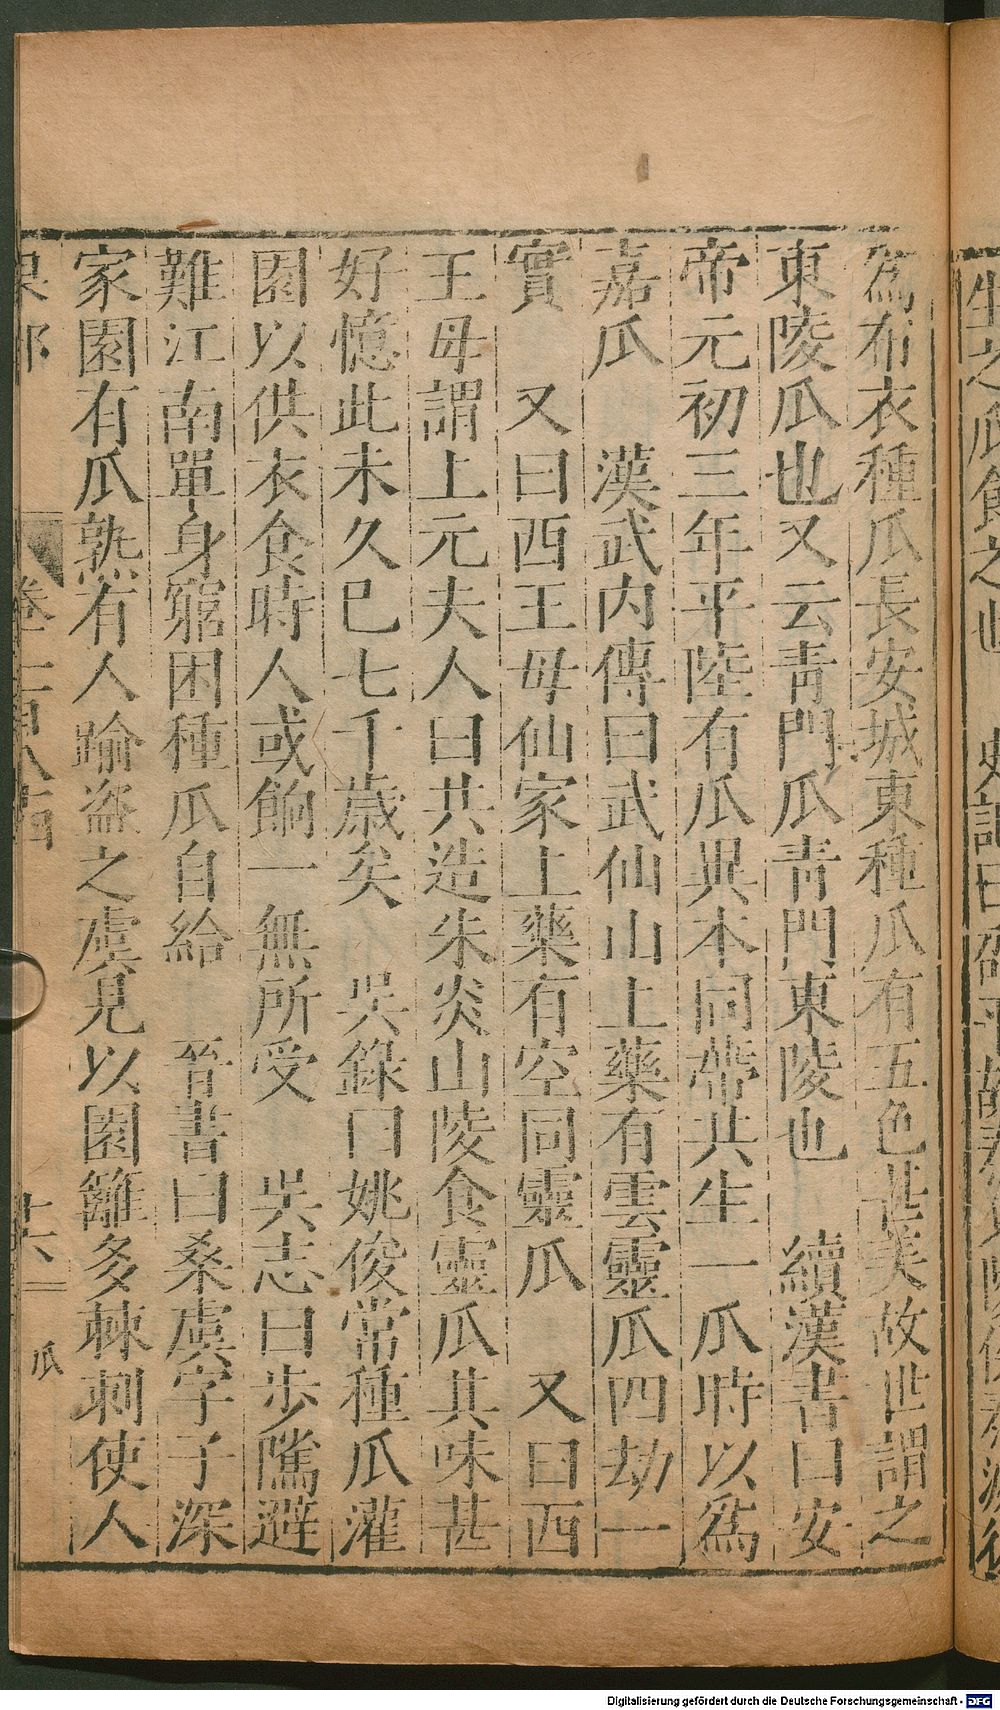 爲布衣種瓜長安城東種瓜有五色甚美故世謂之
東陵瓜也又云青門瓜青門東陵也　續漢書曰安
帝元初三年平陸有瓜異本同蔕共生一瓜時以爲
嘉瓜　漢武内傳曰武仙山上藥有雲靈瓜四劫一
實　又曰西王母仙家上藥有空同靈瓜　又曰西
王母謂上元夫人曰共造朱炎山陵食靈瓜其味甚
好憶此未久巳七千歲矣　吳錄曰姚俊常種瓜灌
園以供衣食時人或餉一無所受　吳志曰步隲避
難江南單身窮困種瓜自給　晉書曰桑虞字子深
家園有瓜熟有人踰盜之虞見以園籬多棘刺使人
果部　卷二百八十四　十六　瓜
Digitalisierung gefördert durch die Deutsche Forschungsgemeinschaft - DFG